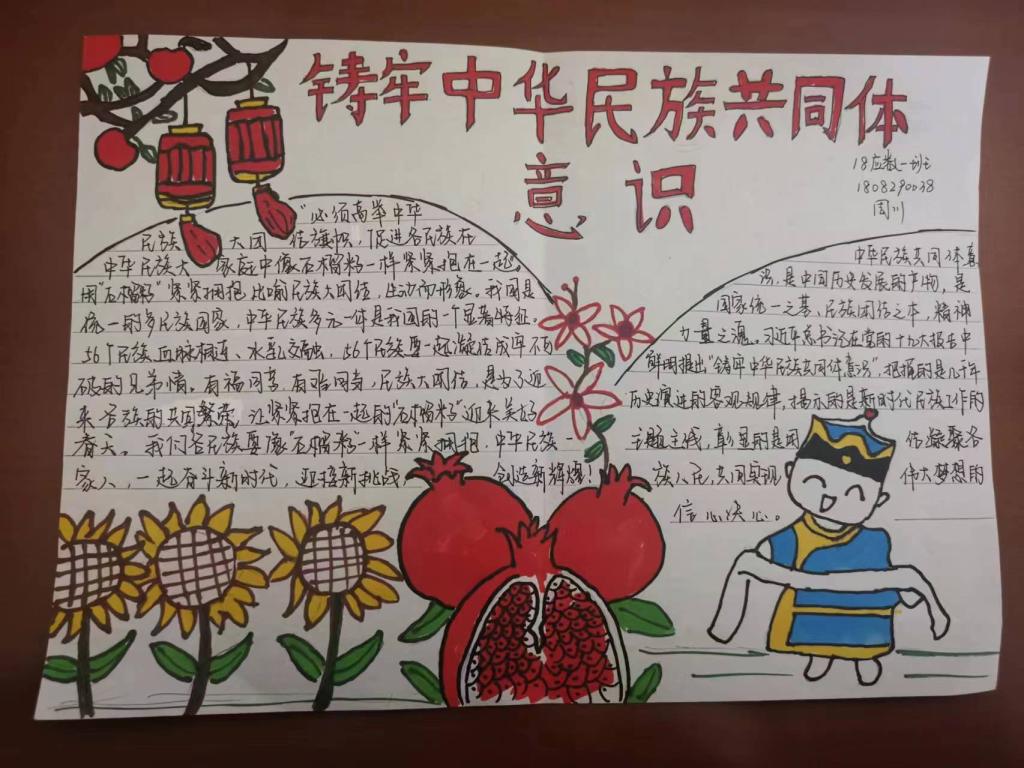 铸牢中华民族共同体
意识
18应数一班
1808290038
周川
"必须高举中华
民族大团结旗帜,促进各民族在
中华民族大家庭中像石榴籽一样紧紧抱在一起。
用"石榴籽"紧紧拥抱比喻民族大团结,生动而形象。我国是
统一的多民族国家,中华民族多元一体是我国的一个显著特征。
56个民族血脉相连、水乳交融,56个民族要一起凝结成牢不可
破的兄弟情。有福同享,有难同当,民族大团结,是为了迎
来各族的共同繁荣,让紧紧抱在一起的"石榴籽"迎来美好的
春天。我们各民族要像"石榴籽"一样紧紧拥抱,中华民族一
家人,一起奋斗新时代,迎接新挑战,创造新辉煌!
中华民族共同体意
识,是中国历史发展的产物,是
国家统一之基、民族团结之本、精神
力量之源。习近平总书记在党的十九大报告中
鲜明提出"铸牢中华民族共同体意识",把握的是几千年
历史演进的客观规律,揭示的是新时代民族工作的
主题主线,彰显的是团结凝聚各
族人民,共同实现伟大梦想的
信心决心。